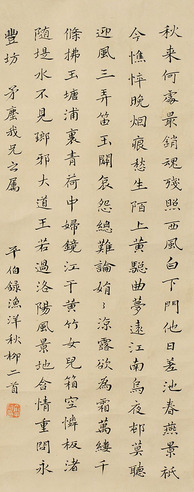 秋來何處最銷魂殘照西風白下門他日差池春燕景祇
今憔悴晚烟痕愁生陌上黃驄曲夢遠江南烏夜邨莫聽
迎風三弄笛玉關哀怨總難論娟〻涼露欲為霜萬縷千
條拂玉塘浦裏青荷中婦鏡江干黃竹女兒箱空憐板渚
隨堤水不見瑯邪大道王若過洛陽風景地含情重問永
豐坊 矛塵我兄云屬
平伯録漁洋秋柳二首